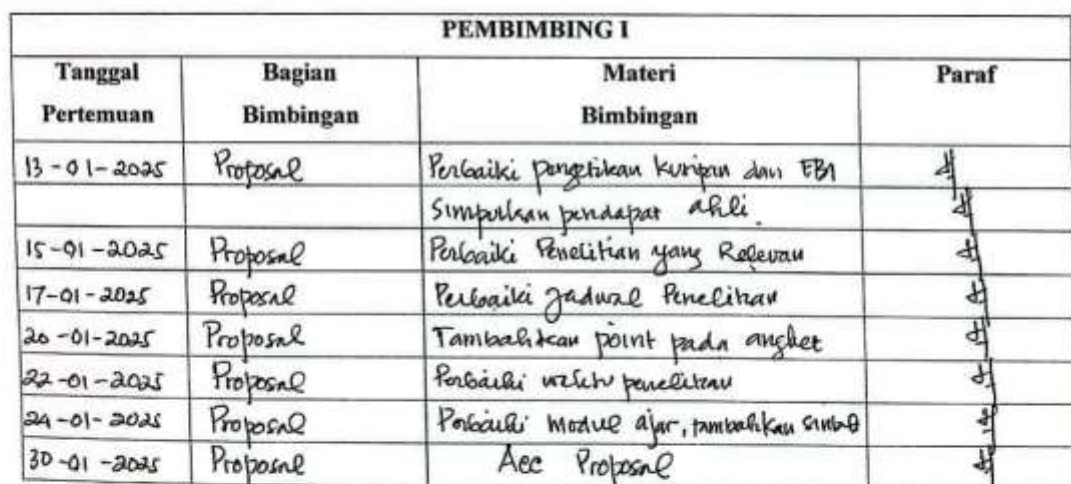 PEMBIMBING I
Tanggal Pertemuan Bagian Bimbingan Materi Bimbingan Paraf
13-01-2025 Proposal Perbaiki pengetikan kutipan dan EBI
Simpulkan pendapat ahli
15-01-2025 Proposal Perbaiki Penelitian yang Relevan
17-01-2025 Proposal Perbaiki Jadwal Penelitian
20-01-2025 Proposal Tambahkan point pada angket
22-01-2025 Proposal Perbaiki waktu penelitian
24-01-2025 Proposal Perbaiki modul ajar, tambahkan
30-01-2025 Proposal Acc Proposal